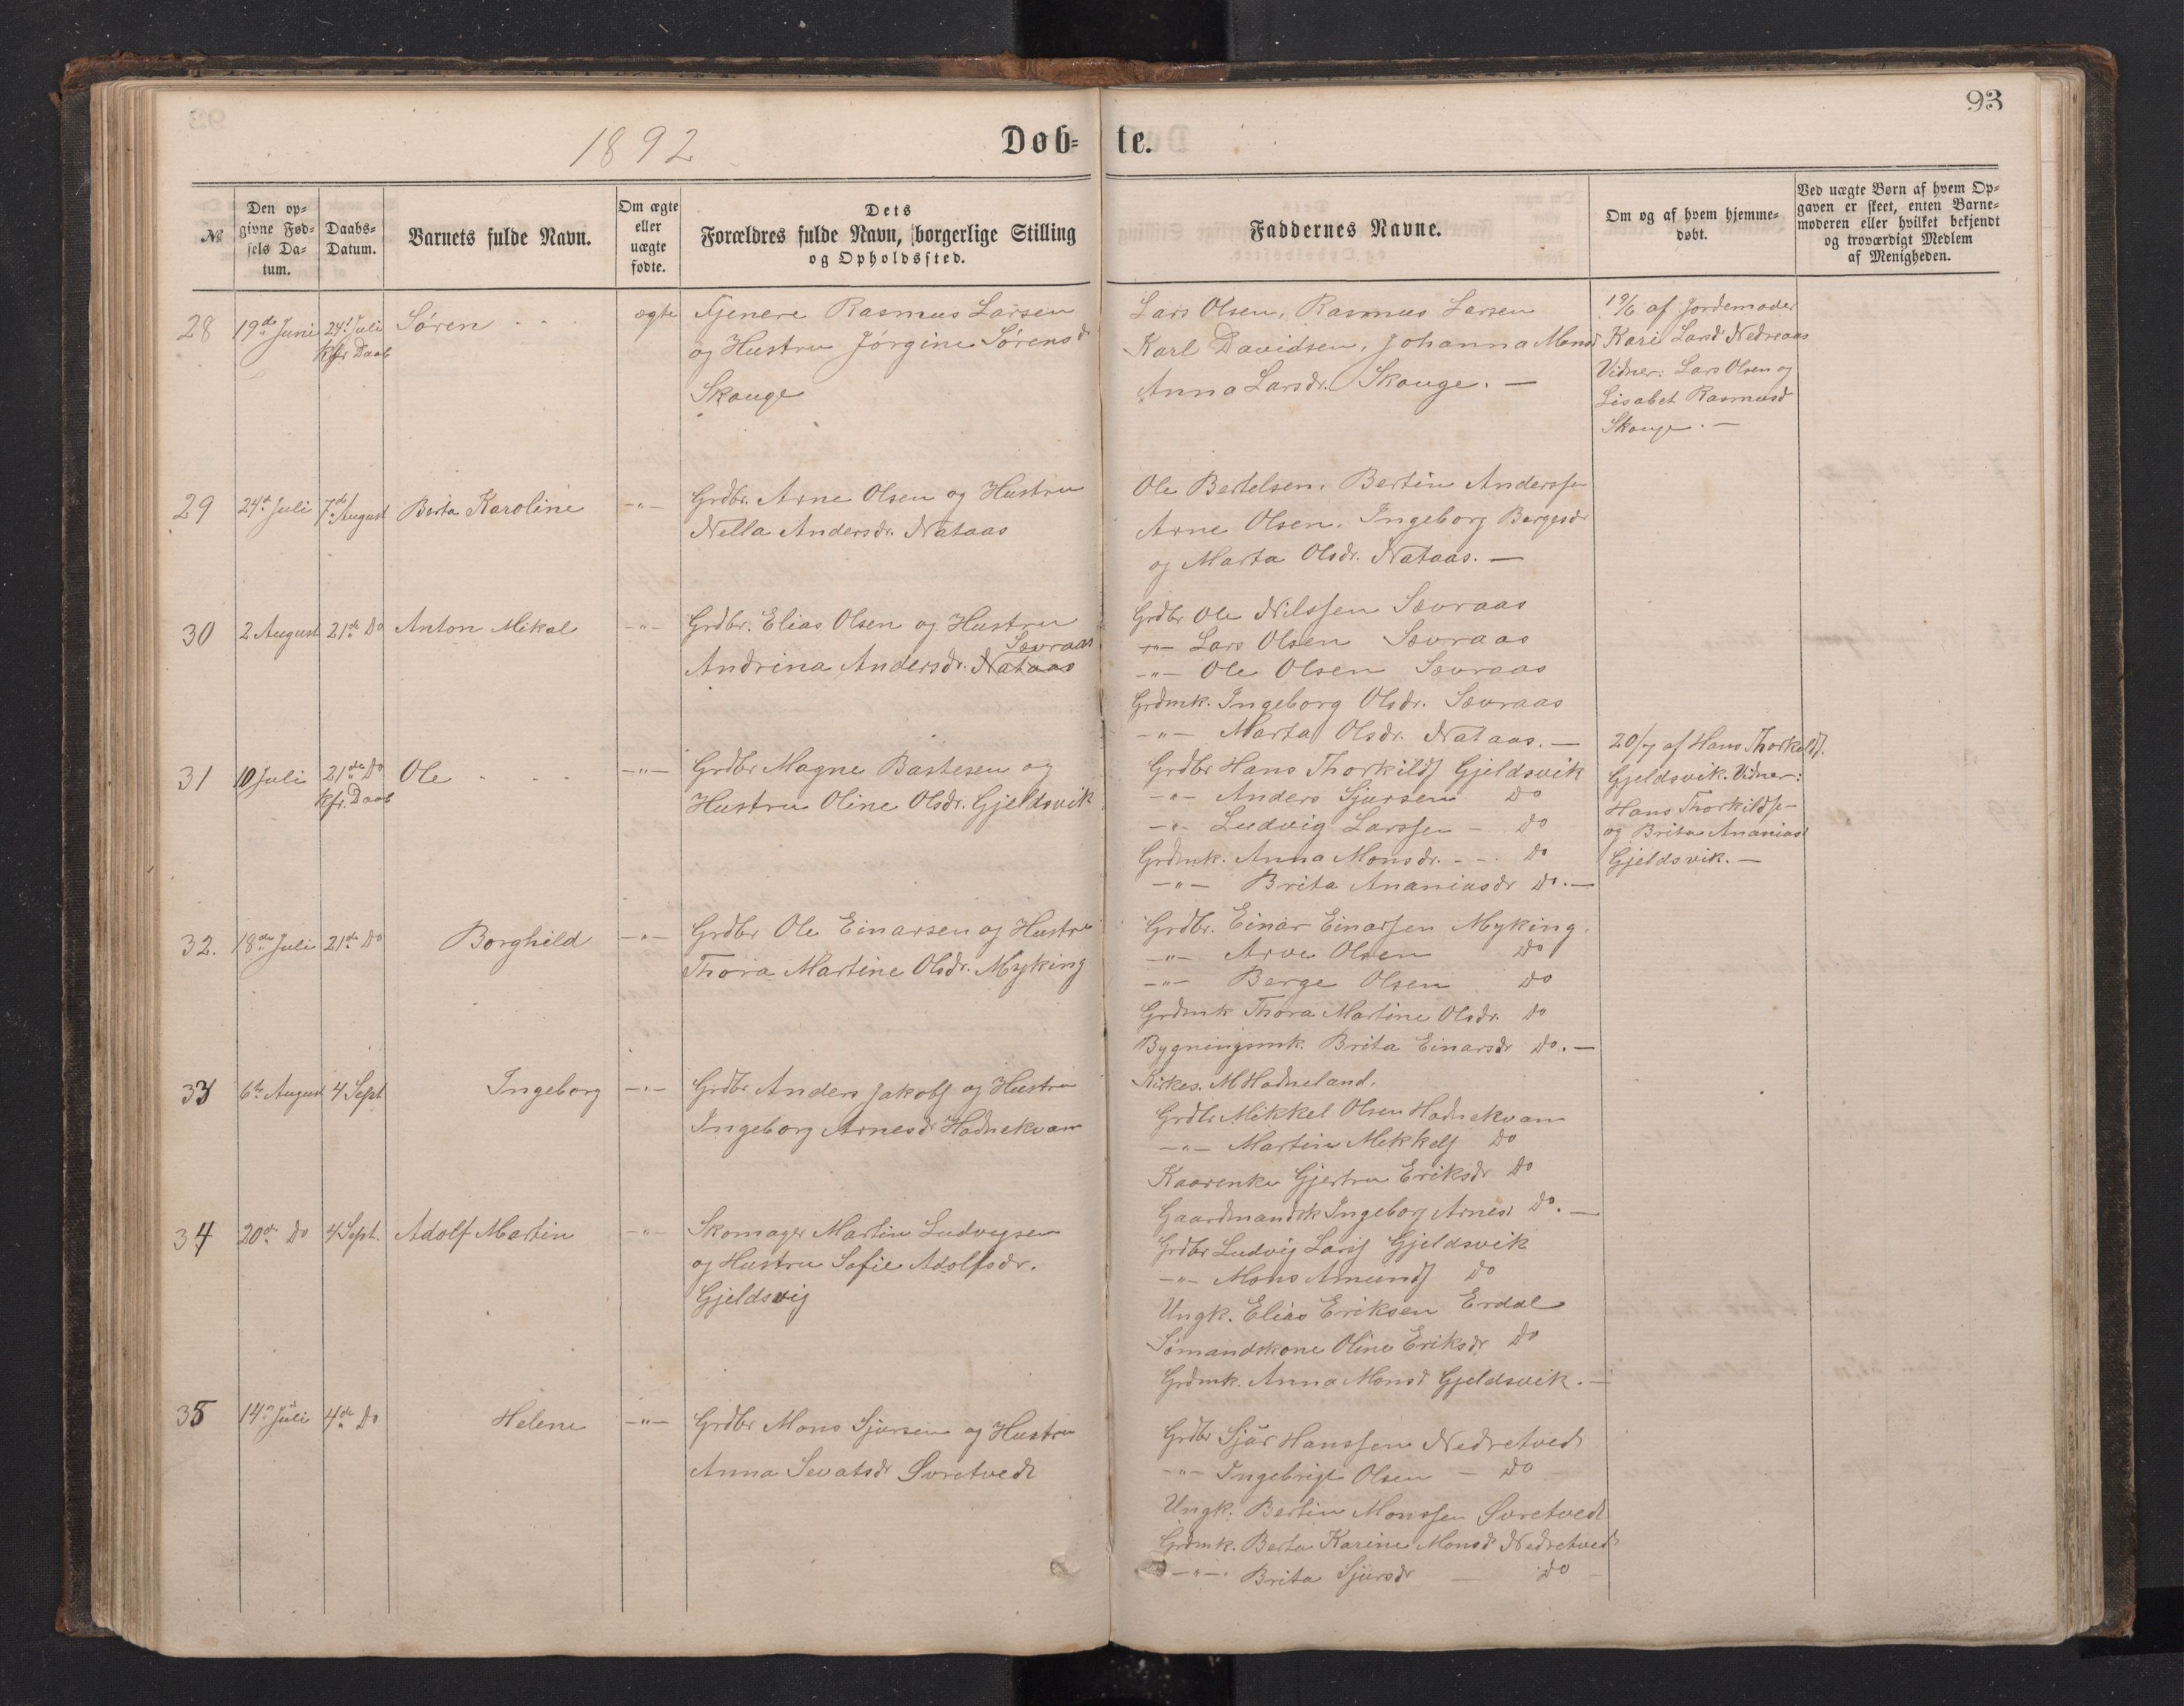 93
1892
Døb-te.
№
Den op-
givne Fød-
sels Da-
tum.
Daabs-
Datum.
Barnets fulde Navn.
Om ægte
eller
uægte
fødte.
Dets
Forældres fulde Navn, borgerlige Stilling
og Opholdssted.
Faddernes Navne.
Om og af hvem hjemme-
døbt.
Ved uægte Børn af hvem Op-
gaven er skeet, enten Barne-
moderen eller hvilket bekjendt
og troværdigt Medlem
af Menigheden.
28 19de Juni 24d Juli Søren ægte Tjener Rasmus Larsen
Kfr. Daab og Hustru Jørgine Sørensdr
Skauge
Lars Olsen, Rasmus Larsen
Karl Davidsen, Johanna Monsd
Anna Larsdr. Skauge. —
19/6 af Jordemoder
Kari Larsd Nedreaas
Vidner: Lars Olsen og
Lisabet Rasmusd
Skauge. —
29 24d Juli 7de August Berta Karoline -"- Grdbr. Arne Olsen og Hustru
Nella Andersdr. Nataas
Ole Bertelsen, Bertin Anderssen
Arne Olsen, Ingeborg Bergesdr
og Marta Olsdr. Nataas. —
30 2 August 21de Do Anton Mikal -"- Grdbr. Elias Olsen og Hustru
Sævraas
Andrina Andersdr. Nataas
Grdbr Ole Nilssen Sævraas
-"- Lars Olsen Sævraas
-"- Ole Olsen Sævraas
Grdmk. Ingeborg Olsdr. Sævraas
-"- Marta Olsdr. Nataas. —
31 10 Juli 21de Do Ole -"- Grdbr Magne Bastesen og
Kfr. Daab Hustru Oline Olsdr. Gjeldsvik
Grdbr Hans Thorkilds Gjeldsvik
-"- Anders Sjursen Do
-"- Ludvig Larssen - Do
Grdmk. Anna Monsdr. - - Do
-"- Brita Ananiasdr Do. —
20/7 af Hans Thorkelds.
Gjeldsvik. Vidner:
Hans Thorkildse-
og Brita Ananiasd
Gjeldsvik. —
32. 18de Juli 21de Do Borghild -"- Grdbr Ole Einarsen og Hustru
Thora Martine Olsdr. Myking
Grdbr. Einar Einarsen Myking.
-"- Arve Olsen Do
-"- Berge Olsen Do
Grdmk Thora Martine Olsdr. Do
Bygningsmk. Brita Einarsdr Do. —
33 6te August 4 Sept Ingeborg -"- Grdbr Anders Jakobs og Hustru
Ingeborg Arnesdr Hodnekvam
Kirkes. M Hodneland.
Grdbr Mikkel Olsen Hodnekvam
-"- Martin Mikkels Do
Kaarenke Gjertru Eriksdr Do
Gaardmandsk Ingeborg Arnesd Do. —
34 20de Do 4 Sept. Adolf Martin -"- Skomager Martin Ludvigsen
og Hustru Sofie Adolfsdr.
Gjeldsvig
Grdbr Ludvig Lars Gjeldsvik
-"- Mons Amunds Do
Ungk. Elias Eriksen Erdal
Sømandskone Oline Eriksdr Do
Grdmk. Anna Monsd Gjeldsvik. —
35 14de Juli 4de Do Helene -"- Grdbr Mons Sjursen og Hustru
Anna Sevatsdr Øvretvedt
Grdbr Sjur Hanssen Nedretvedt
-"- Ingebrigt Olsen - Do
Ungk. Bertin Monssen Øvretvedt
Grdmk. Berta Karine Monsd Nedretvedt
-"- Brita Sjursdr — Do